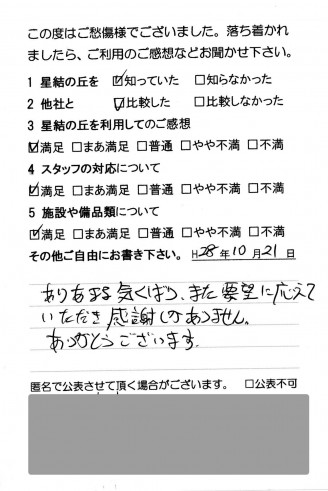 この度はご愁傷様でございました。落ち着かれ
ましたら、ご利用のご感想などお聞かせ下さい。
1 星結の丘を ☑知っていた □知らなかった
2 他社と ☑比較した □比較しなかった
3 星結の丘を利用してのご感想
☑満足 □まあ満足 □普通 □やや不満 □不満
4 スタッフの対応について
☑満足 □まあ満足 □普通 □やや不満 □不満
5 施設や備品類について
☑満足 □まあ満足 □普通 □やや不満 □不満
その他ご自由にお書き下さい。 H28年10月21日
ありあまる気くばり、また要望に応えて
いただき感謝しかありません。
ありがとうございます。
匿名で公表させて頂く場合がございます。 □公表不可